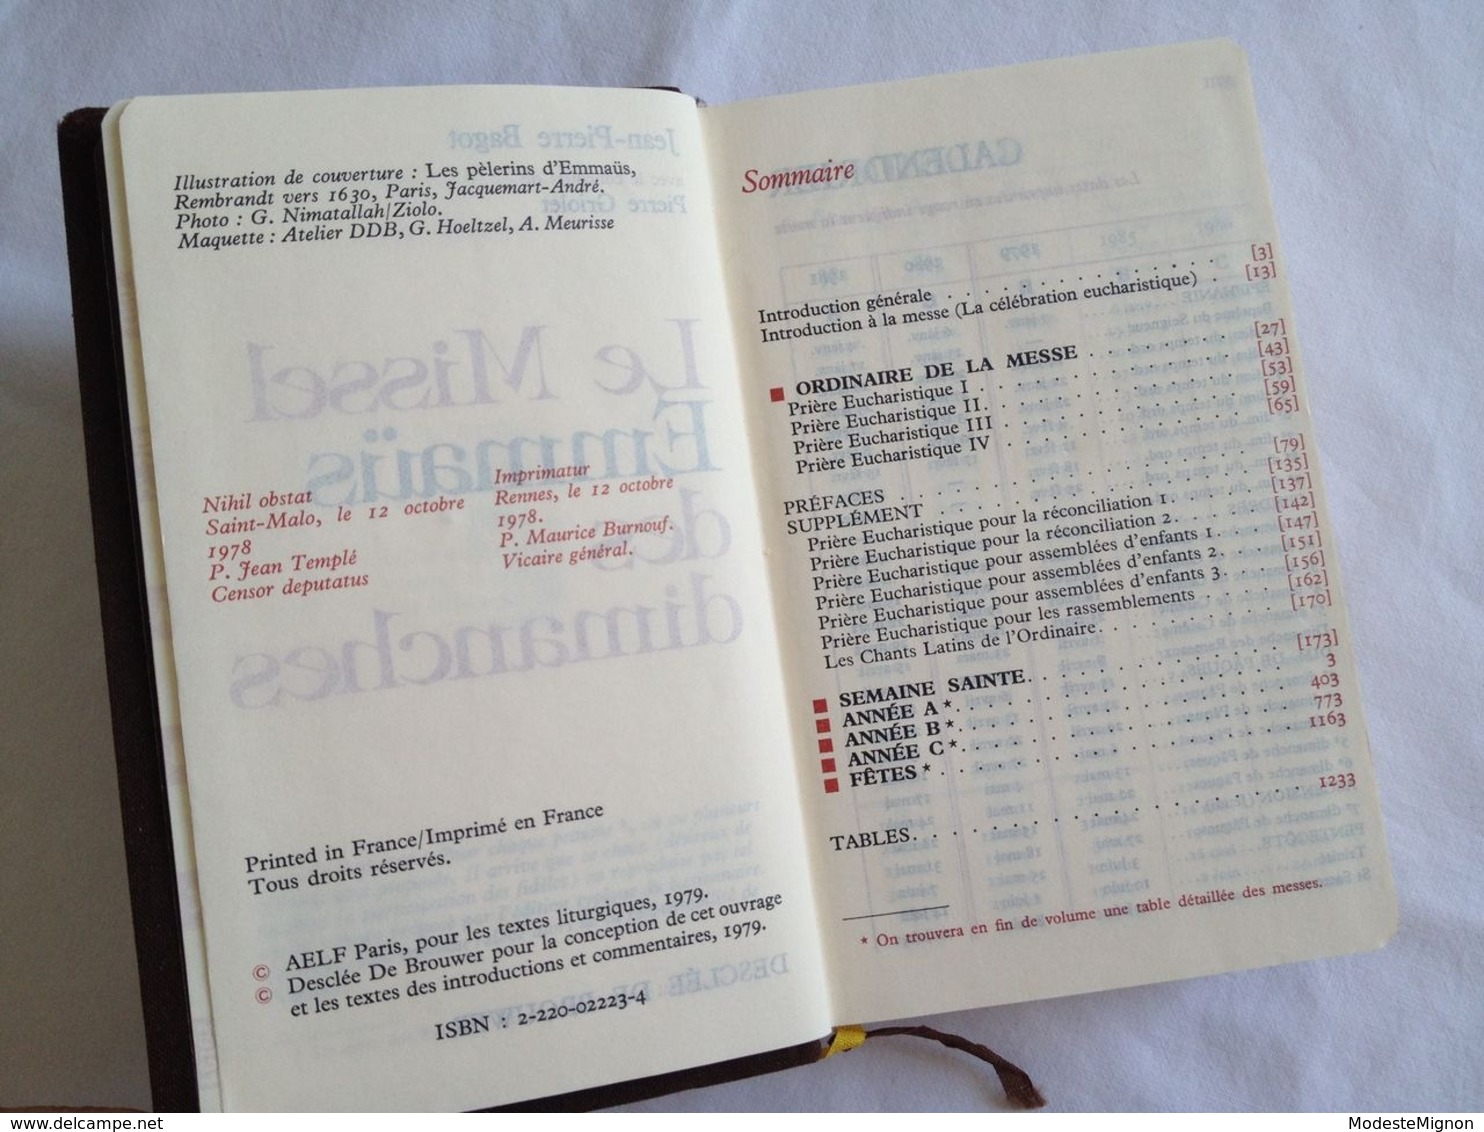 Illustration de couverture : Les pèlerins d'Emmaüs,
Rembrandt vers 1630, Paris, Jacquemart-André.
Photo : G. Nimatallah/Ziolo.
Maquette : Atelier DDB, G. Hoeltzel, A. Meurisse
Nihil obstat
Saint-Malo, le 12 octobre
1978
P. Jean Templé
Censor deputatus
Imprimatur
Rennes, le 12 octobre
1978.
P. Maurice Burnouf.
Vicaire général.
Printed in France/Imprimé en France
Tous droits réservés.
© AELF Paris, pour les textes liturgiques, 1979.
© Desclée De Brouwer pour la conception de cet ouvrage
et les textes des introductions et commentaires, 1979.
ISBN : 2-220-02223-4
Sommaire
Introduction générale . . . . . . . . . . . . [3]
Introduction à la messe (La célébration eucharistique) . [13]
■ ORDINAIRE DE LA MESSE . . . . . . [27]
Prière Eucharistique I . . . . . . . . . . [43]
Prière Eucharistique II. . . . . . . . . . [53]
Prière Eucharistique III . . . . . . . . . [59]
Prière Eucharistique IV . . . . . . . . . [65]
PRÉFACES . . . . . . . . . . . . . . [79]
SUPPLÉMENT . . . . . . . . . . . . . [135]
Prière Eucharistique pour la réconciliation 1. . . . [137]
Prière Eucharistique pour la réconciliation 2. . . . [142]
Prière Eucharistique pour assemblées d'enfants 1. . . [147]
Prière Eucharistique pour assemblées d'enfants 2. . . [151]
Prière Eucharistique pour assemblées d'enfants 3. . . [156]
Prière Eucharistique pour les rassemblements . . . . [162]
Les Chants Latins de l'Ordinaire. . . . . . . . [170]
■ SEMAINE SAINTE. . . . . . . . . . [173]
■ ANNÉE A *. . . . . . . . . . . . 3
■ ANNÉE B *. . . . . . . . . . . . 403
■ ANNÉE C *. . . . . . . . . . . . 773
■ FÊTES * . . . . . . . . . . . . . 1163
TABLES. . . . . . . . . . . . . . . 1233
* On trouvera en fin de volume une table détaillée des messes.
Jean-Pierre Bagot
Pierre Griolet
Le Missel
Emmaüs
des
dimanches
DESCLÉE DE BROUWER
ModesteMignon